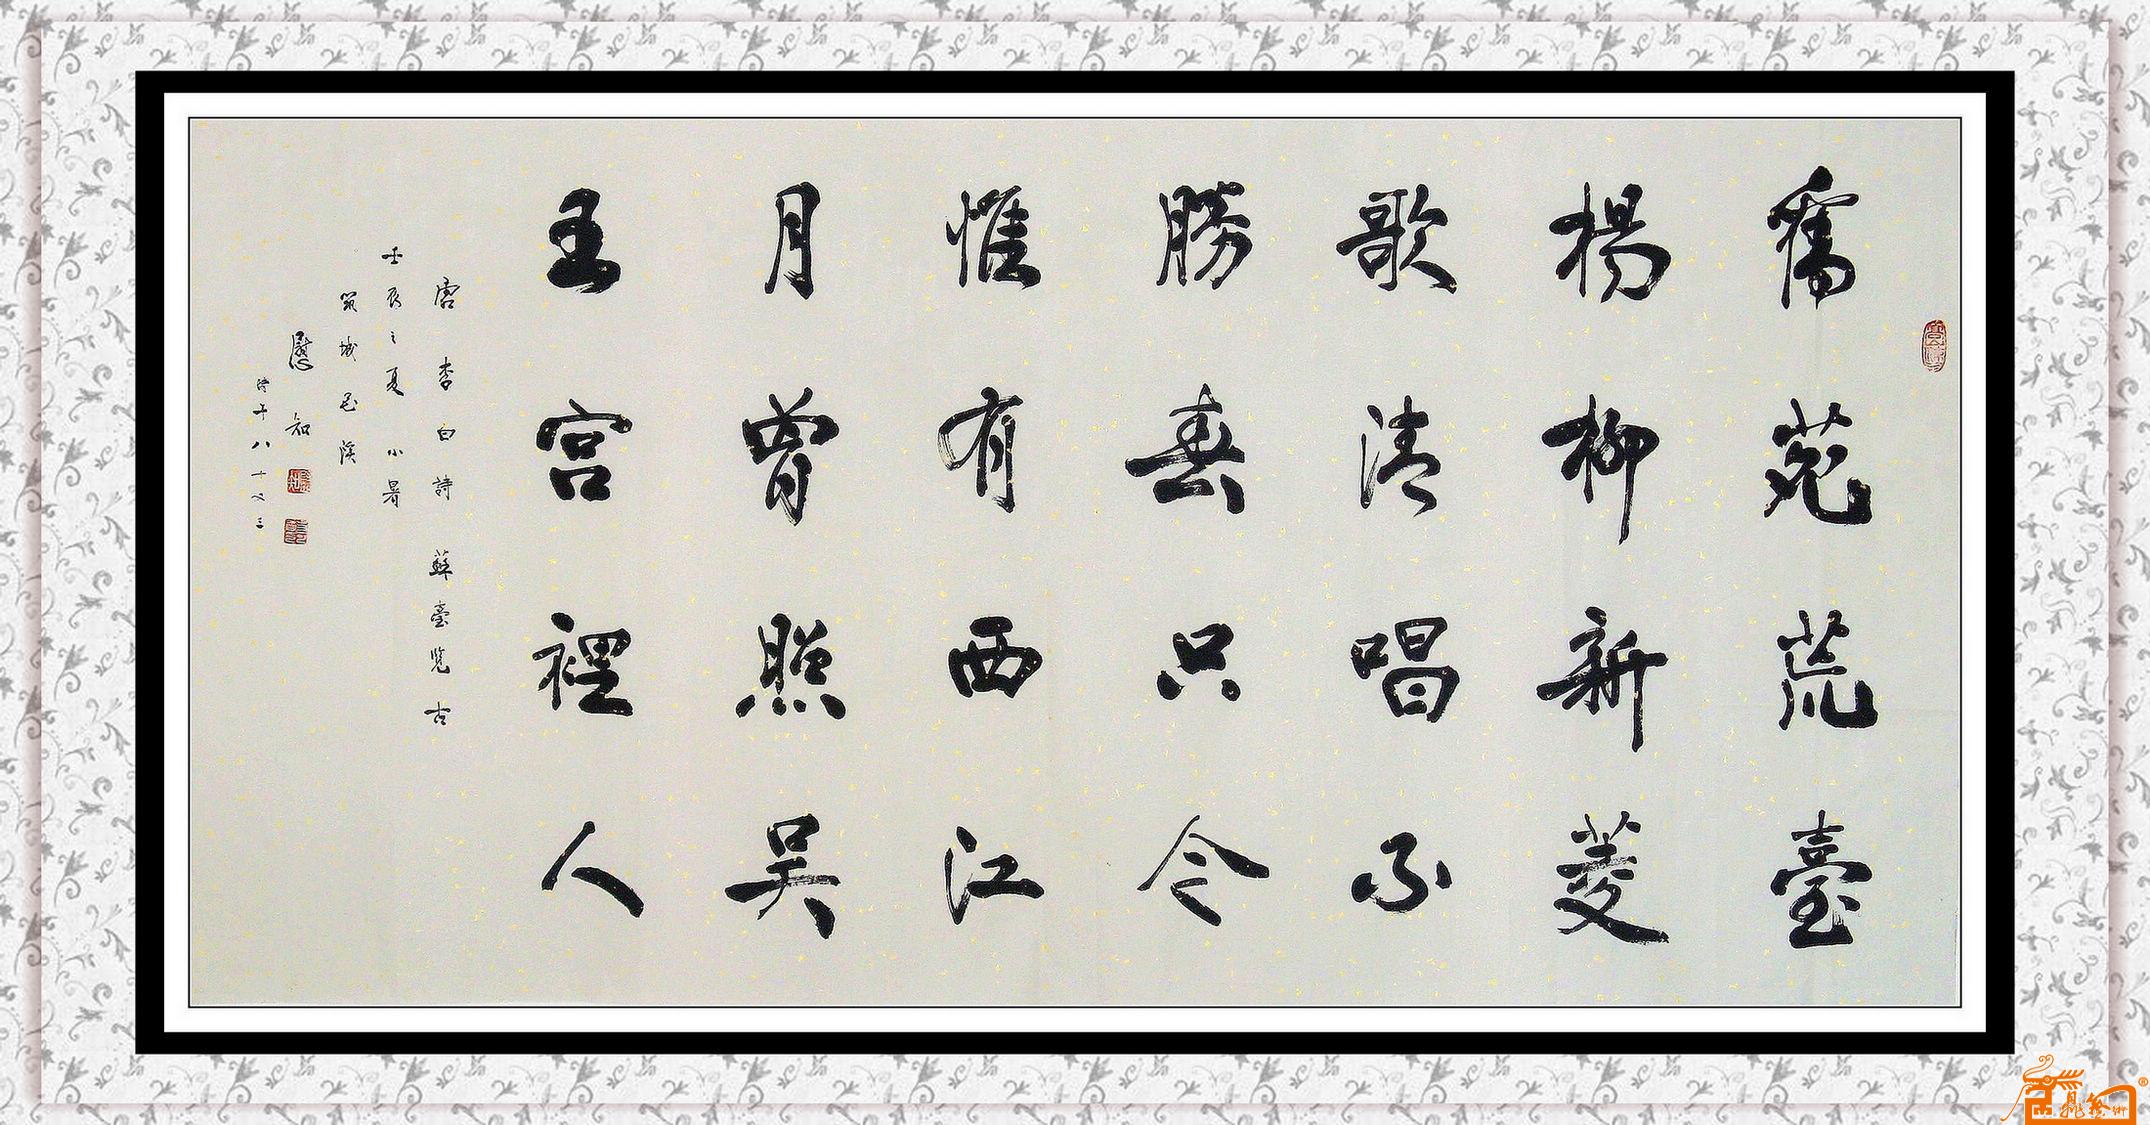 舊苑荒臺
楊柳新菱
歌清唱不
勝春只今
惟有西江
月曾照吳
王宮裡人
唐李白詩 蘇臺覽古
壬辰之夏小暑
筑城花溪
時年八十又三